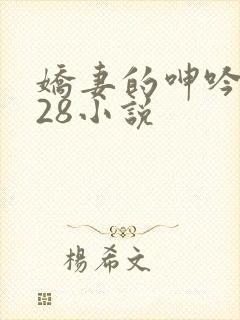 嬌妻的呻吟
28小説
楊希文